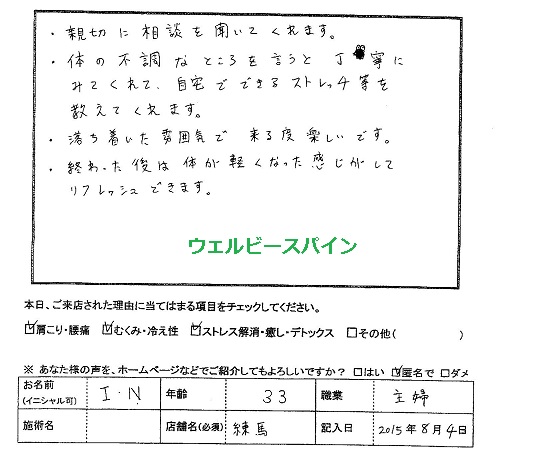 ・親切に相談を聞いてくれます。
・体の不調なところを言うと丁寧に
みてくれて、自宅でできるストレッチ等を
教えてくれます。
・落ち着いた雰囲気で来る度楽しいです。
・終わった後は体が軽くなった感じがして
リフレッシュできます。
ウェルビースパイン
本日、ご来店された理由に当てはまる項目をチェックしてください。
☑肩こり・腰痛 ☑むくみ・冷え性 ☑ストレス解消・癒し・デトックス □その他( )
※ あなた様の声を、ホームページなどでご紹介してもよろしいですか？ □はい ☑匿名で □ダメ
お名前 (イニシャル可) I・N 年齢 33 職業 主婦
施術名 店舗名(必須) 練馬 記入日 2015年8月4日